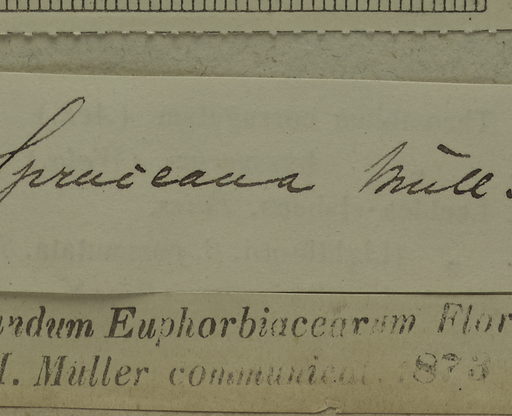 Spruceana Müll.
Euphorbiacearum Flor
Müller communicat. 1873